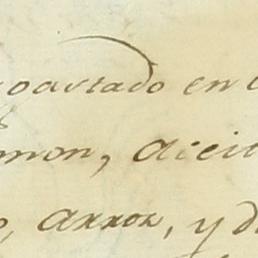 gastado en
mon, Aceit
, Arroz, y d